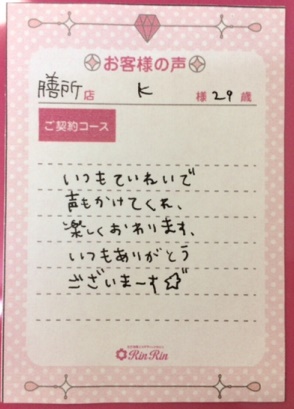 お客様の声
膳所店 K 様 29 歳
ご契約コース
いつもていねいで
声もかけてくれ、
楽しくおわります、
いつもありがとう
ございまーす☆
RinRin